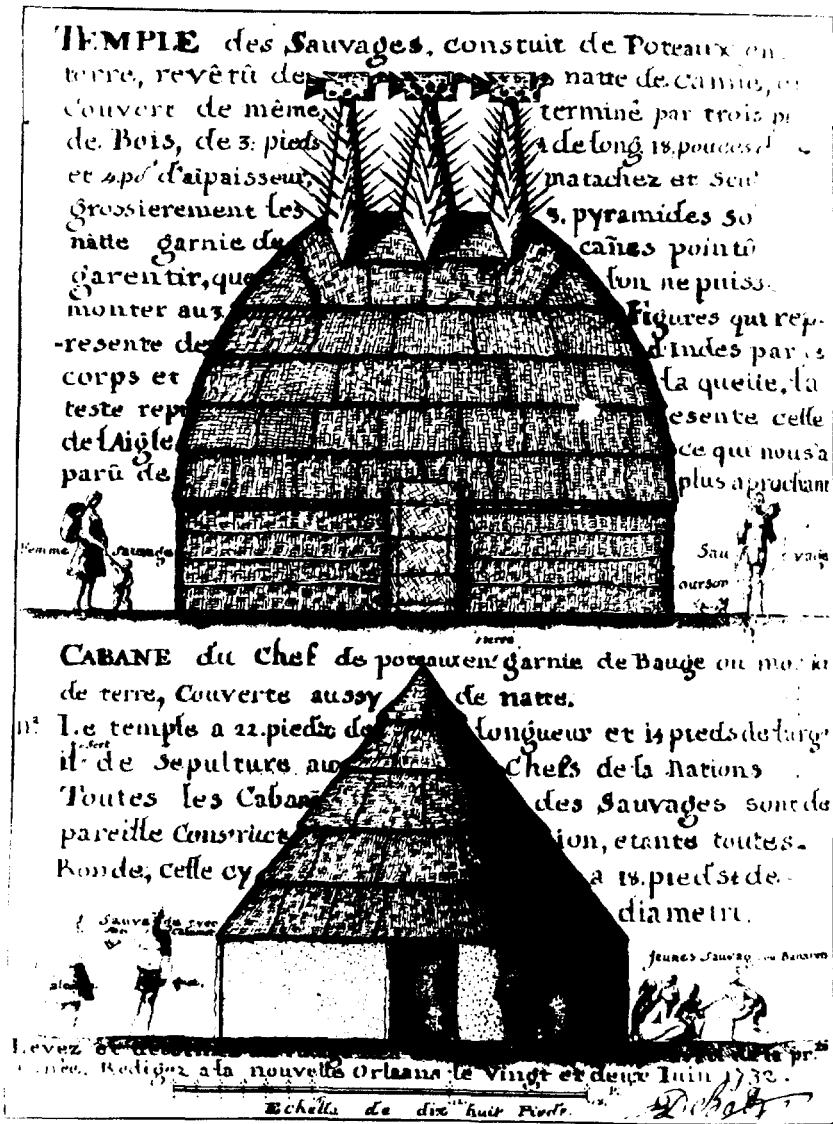 TEMPLE des Sauvages, constuit de Poteaux en
terre, revêtû de natte de Canne, et
Couvert de même, terminé par trois
de Bois, de 3: pieds de long 18. pouces
et 4. po d'aipaisseur, matachez et
grossierement les 3. pyramides
natte garnie de cañes pointû
garentir, que lon ne puiss
monter aux Figures qui rep-
-resente de d'Indes par
corps et la queüe, la
teste rep resente celle
de l'Aigle ce qui nous a
parû de plus aprochant
Femme Sauvage
Sau vage
ourson
terre
CABANE du Chef de poteaux en garnie de Bauge ou
de terre, Couverte aussy de natte.
Le temple a 22. pieds de Longueur et 14 pieds de larg
sert
il de Sepulture aux Chefs de la Nations
Toutes les Caban des Sauvages sont de
pareille Construct ion, etants toutes.
Ronde, Celle cy a 18. pieds de
diametre.
Sauvage avec
Jeunes Sauvag
Levez et
Redigez a la nouvelle Orleans le Vingt et deux Juin 1732.
Echelle de dix huit Pieds.
De Batz